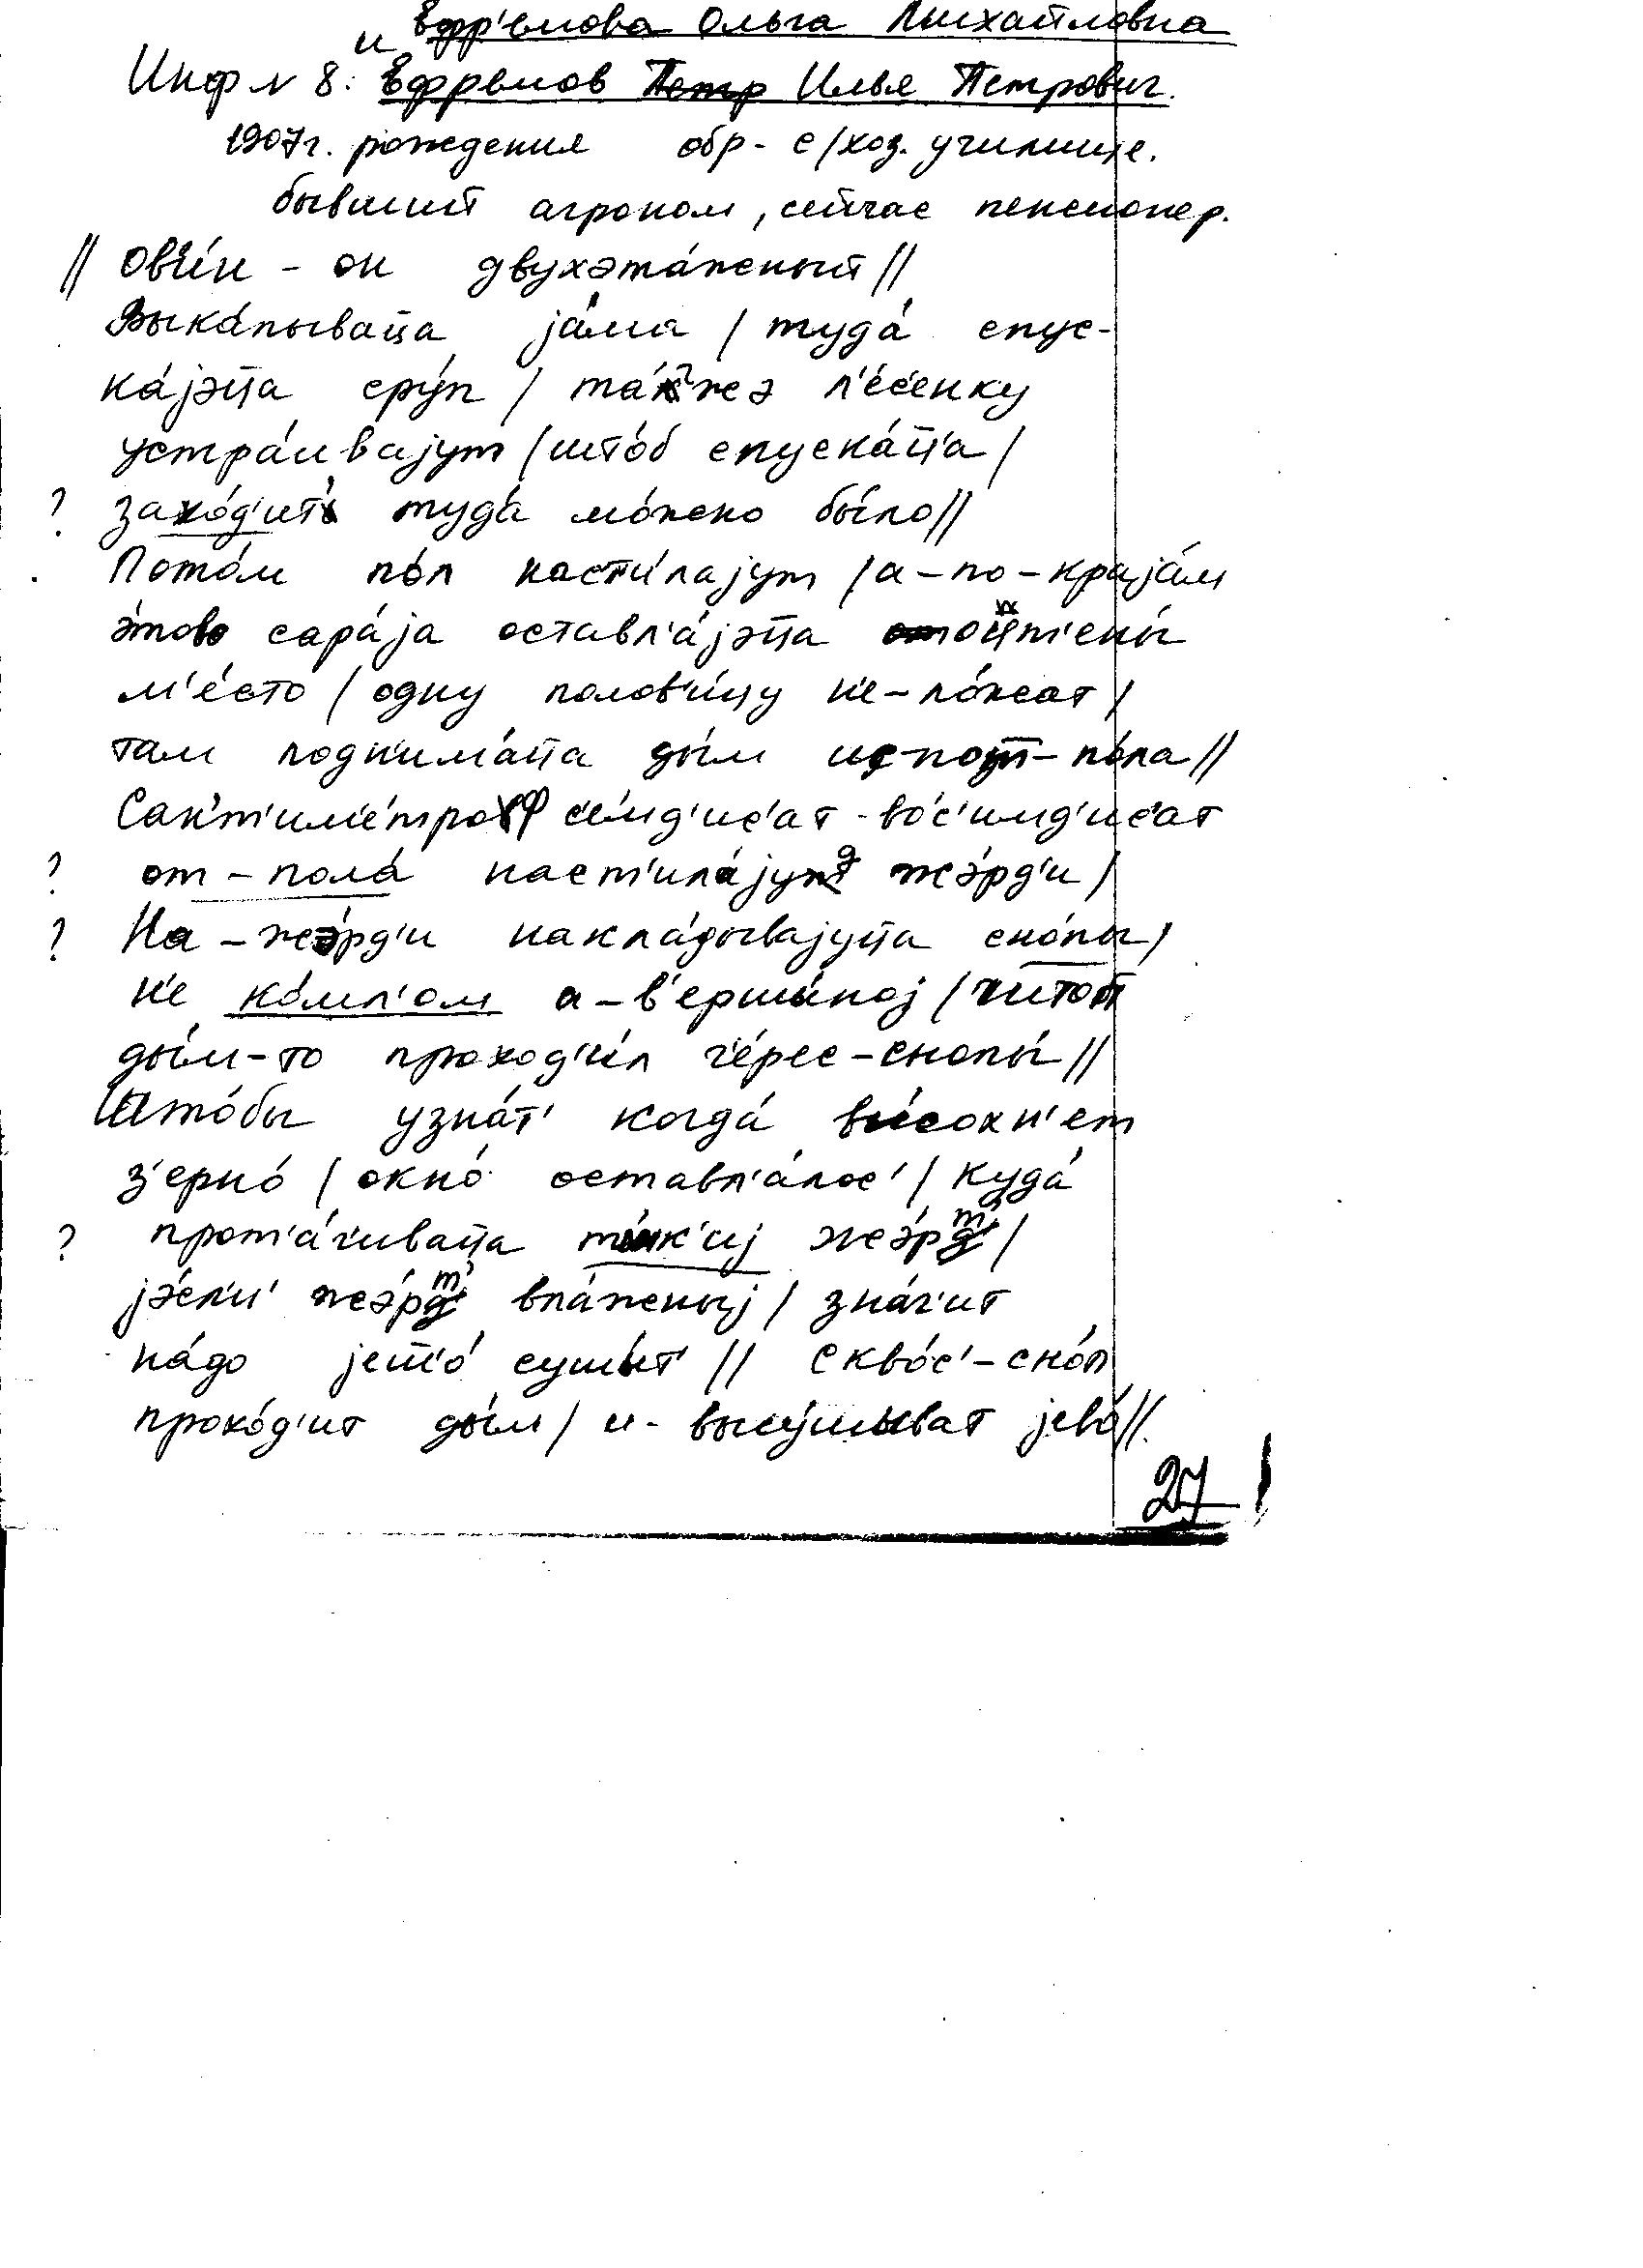 и Ефр'емова Ольга Михайловна
Инф N 8: Ефремов Петр Илья Петрович.
1907 г. рождения обр- с/хоз. училище.
бывший агроном, сейчас пенсионер.
// Ов'и́н - он двухэта́жный //
Выка́пываца jа́ма / туда́ спус-
ка́jэца сру́п / та́г жэ л'е́с'енку
устра́ивajут / што́б спуска́ца /
? захо́д'ит' туда́ мо́жно бы́ло //
. Пото́м по́л наст'и́лаjут / а-по-краjа́м
э́тово сара́jа оставл'а́jэца от ст'ены́
м'е́сто / одну полов'и́цу н'е-ло́жат /
там подн'има́ца ды́м ис-пот-по́ла //
Сант'им'е́троф с'е́мд'ис'ат - во́с'имд'ис'ат
? от-пола́ наст'ила́jуд жэ́рд'и /
? На-жэ́рд'и накла́дываjуца сно́пы /
н'е ко́мл'ом а-в'ершы́ноj / штоп
ды́м-то проход'и́л ч'е́рес-снопы́ //
Што́бы узна́т' когда́ вы́сохн'ет
з'ерно́ / окно́ оставл'а́лос' / куда́
? прот'а́г'иваца то́нк'иj жэ́рт' /
jэ́сл'и жэ́рт' вла́жныj / зна́ч'ит
на́до jешшо́ сушы́т' // Сквос'-сно́п
прохо́д'ит ды́м / и-высу́шыват jево́ //
27 !